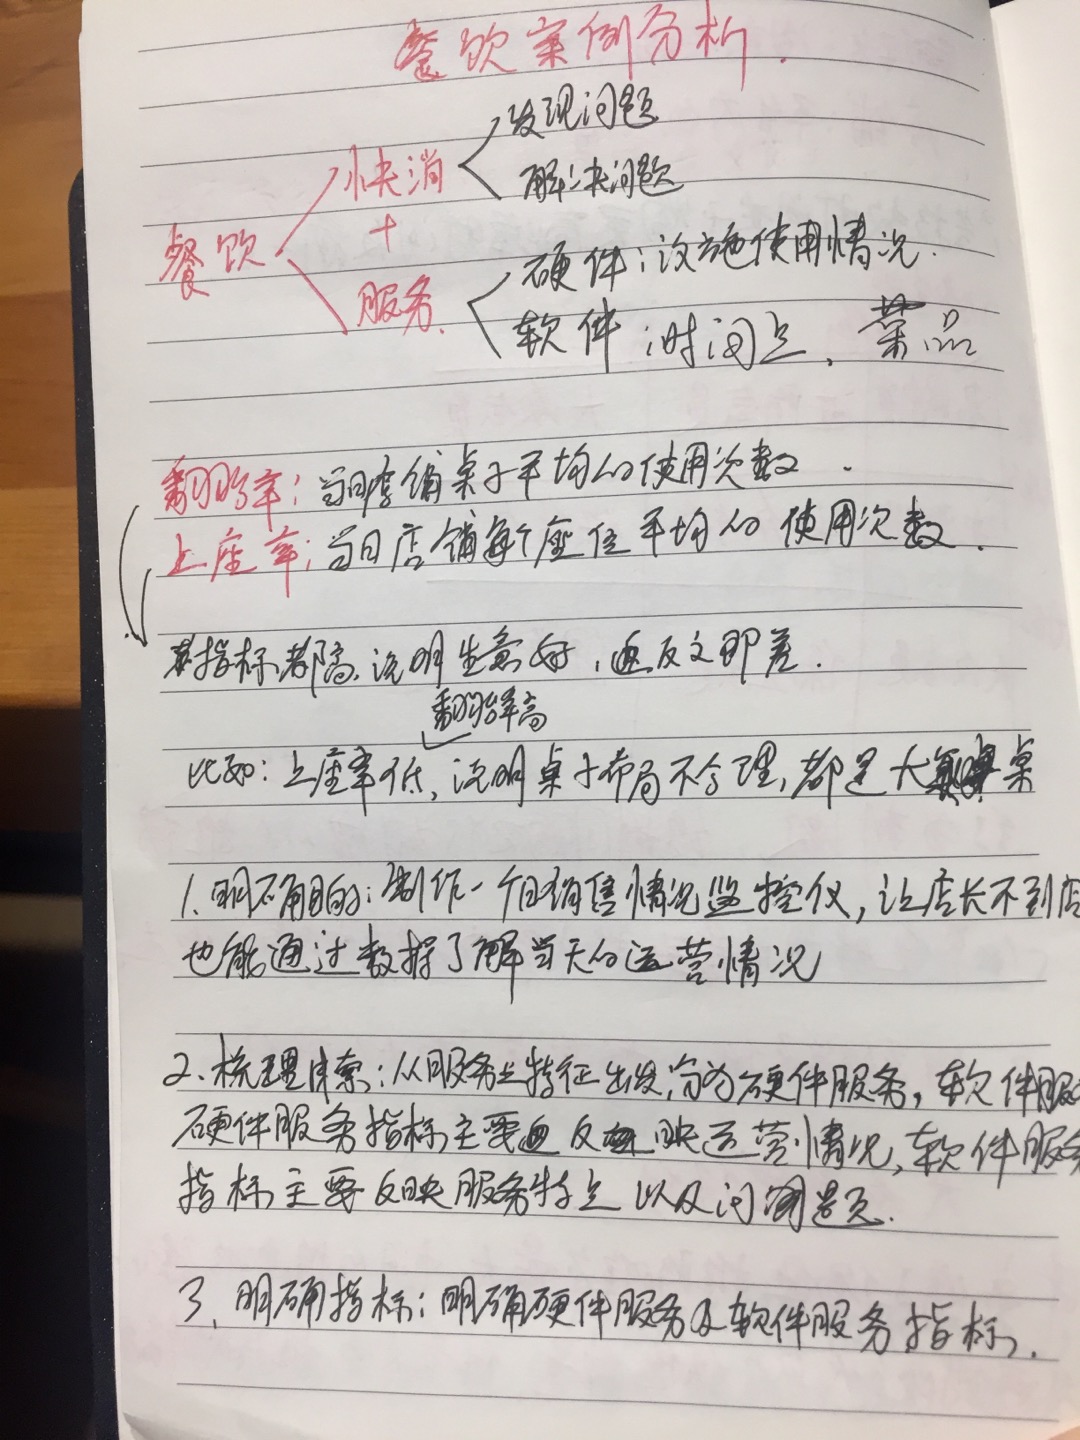 餐饮案例分析.
发现问题
快消
解决问题
+
餐饮
硬件:设施使用情况.
服务.
软件:时间点、菜品
翻台率:当日店铺桌子平均的使用次数.
上座率:当日店铺每个座位平均的使用次数.
指标都高,说明生意好,反之即差.
翻台率高
比如:上座率低,说明桌子布局不合理,都是大桌
1.明确目的:制作一个日销售情况监控仪,让店长不到店
也能通过数据了解当天的运营情况
2.梳理思索:从服务业特征出发,分为硬件服务,软件服务
硬件服务指标主要反映运营情况,软件服务
指标主要反映服务特点以及问题.
3.明确指标:明确硬件服务及软件服务指标.